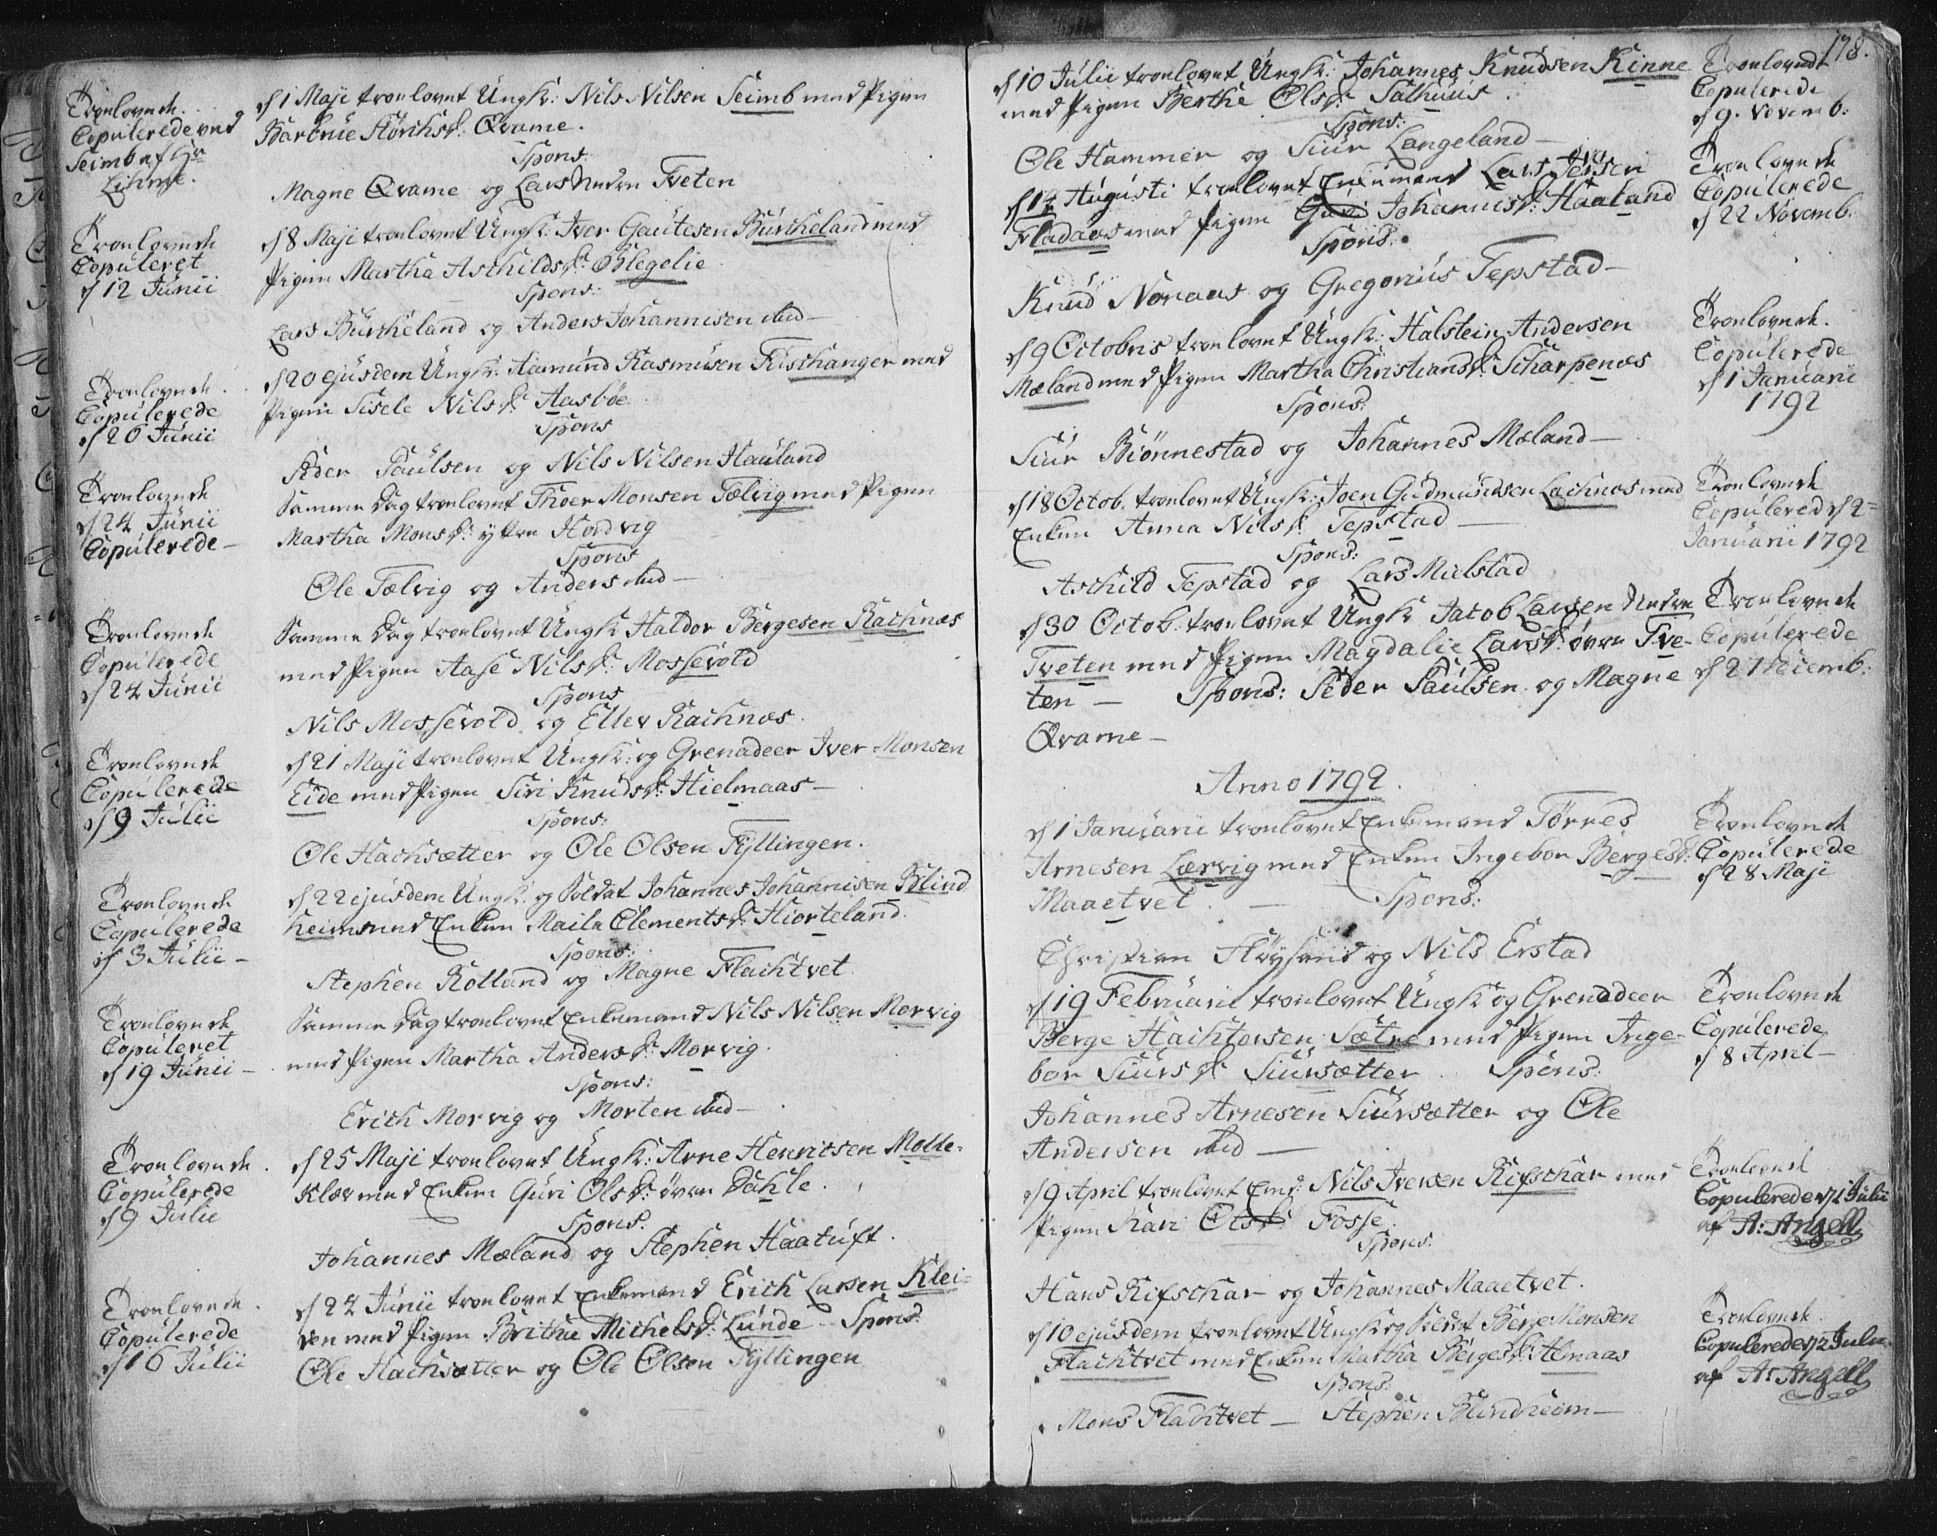 Troelovede
Copulerede ved
Seimb af Hr
d 1 Maji troelovet Ungk: Nils Nilsen Seimb med Pigen
Barbrue Størchsd: Qvame.
Spons.
Magne Qvame og Lars Nedre Tveten
Troelovede
Copuleret
d 12 Junii
d 8 Maji troelovet Ungk: Iver Gautesen Burkeland med
Pigen Martha Aschildsd: Blegelie
Spons:
Lars Burkeland og Anders Johannisen ibid—
Troelovede
Copulerede
d 26 Junii
d 20 ejusdem Ungk: Aamund Rasmusen Fischanger med
Pigen Sisele Nilsd: Aasbøe
Spons
Peder Paulsen og Nils Nilsen Hauland
Troelovede
d 24 Junii
Copulerede—
Samme Dag troelovet Thoer Monsen Tælvig med Pigen
Martha Monsd: ytre Hordvig
Spons
Ole Tælvig og Anders ibid—
Troelovede
Copulerede
d 24 Junii
Samme Dag troelovet Ungk Haldor Bergesen Rachnæs
med Pigen Aase Nilsd: Mossevold
Spons
Nils Mossevold og Ellev Rachnæs.
Troelovede
Copulerede
d 9 Julii
d 21 Maji troelovet Ungk: og Grenadeer Iver Monsen
Eide med Pigen Siri Knudsd: Hielmaas—
Spons:
Ole Hachsætter og Ole Olsen Fyllingen.
Troelovede
Copulerede
d 3 Julii—
d 22 ejusdem Ungk. og Soldat Johannes Johannisen Blind
heim med Enken Maila Clementsd: Hiorteland.
Spons:
Stephen Rolland og Magne Flachtvet
Troelovede
Copuleret
d 19 Junii—
Samme Dag troelovet Enkemand Nils Nilsen Morvig
med Pigen Martha Andersd: Morvig.
Spons:
Erich Morvig og Morten ibid—
Troelovede.
Copulerede
d 9 Julii
d 25 Maji troelovet Ungk: Arne Henricsen Molde-
klæv med Enken Guri Olsd: øvre Dahle.
Spons.
Johannes Mæland og Stephen Haatuft.
Troelovede.
Copulerede
d 16 Julii
d 24 Junii troelovet Enkemand Erich Larsen Klei-
ven med Pigen Brithe Michelsd: Lunde— Spons
Ole Hachsætter og Ole Olsen Fyllingen
178.
d 10 Julii troelovet Ungk: Johannes Knudsen Kinne
med Pigen Berthe Olsd: Salhuus.
Spons:
Ole Hammer og Siur Langeland—
Troelovede
Copulerede
d 9. Novemb:
d 14 Augusti troelovet Enkemand Lars Jensen
Fladaas med Pigen Guri Johannesd: Haaland
Spons:
Knud Noraas og Gregorius Tepstad—
Troelovede
Copulerede
d 22 Novemb.
d 9 Octobris troelovet Ungk: Halstein Andersen
Mæland med Pigen Martha Christiansd: Scharpenæs
Spons:
Siur Biønnestad og Johannes Mæland—
Troelovede.
Copulerede
d 1 Januarii
1792
d 18 Octob. troelovet Ungk: Joen Gudmundsen Lachnæs med
Enken Anna Nilsd: Tepstad—
Spons:
Aschild Tepstad og Lars Mielstad
Troelovede
Copulered d 2=
Januarii 1792
d 30 Octob: troelovet Ungk Jacob Larsen Nedre
Tveten med Pigen Magdalie Larsd: øvre Tve-
ten— Spons: Peder Paulsen og Magne
Qvame—
Troelovede
Copulerede
d 27 Decemb:
Anno 1792.
d 1 Januarii troelovet Enkemand Tørres
Arnesen Lærvig med Enken Ingebor Bergesd:
Maaetvet.— Spons:
Christien Fløysand og Nils Erstad
Troelovede
Copulerede
d 28 Maji
d 19 Februarii troelovet Ungk og Grenadeer
Berge Hachtorsen Sætre med Pigen Inge-
bor Siursd Siursætter. Spons:
Johannes Arnesen Siursætter og Ole
Andersen ibid—
Troelovede
Copulerede
d 8 April—
d 9 April troelovet Emd: Nils Iversen Rifschar med
Pigen Kari Olsd: Fosse.
Spons:
Hans Rifschar og Johannes Maaetvet.
Troelovede
Copulerede d 1 Julii
af A: Angell
d 10 ejusdem troelovet Ungk og Soldat Berge Monsen
Flachtvet med Enken Martha Bergesd: Almaas
Spons:
Mons Flachtvet— Stephen Blindheim—
Troelovede.
Copulerede d 2 Julii
af A: Angell